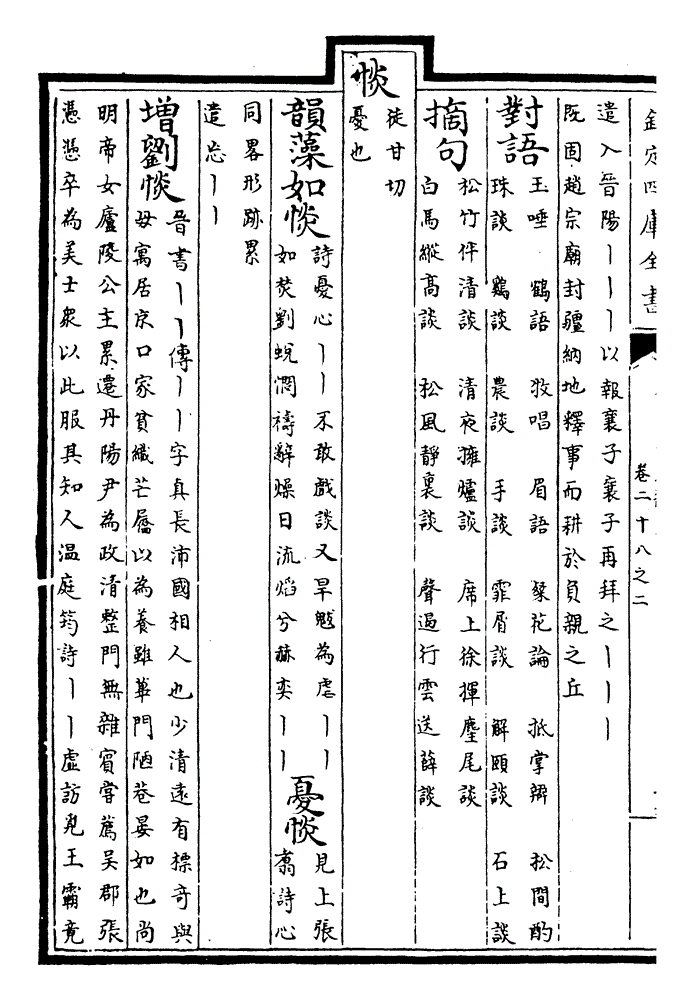 欽定四庫全書
卷二十八之二
遣入晉陽丨丨丨以報襄子襄子再拜之丨丨丨
既固趙宗廟封疆納地釋事而耕於負親之丘
對語
玉唾 鶴語 牧唱 眉語 粲花論 抵掌辯 松間酌
珠談 鷄談 農談 手談 霏屑談 解頤談 石上談
摘句
松竹伴清談 清夜擁爐談 席上徐揮麈尾談
白馬縱高談 松風靜裏談 聲遏行雲送薛談
惔
徒甘切
憂也
韻藻如惔
詩憂心丨丨不敢戲談又旱魃為虐丨丨
如焚劉蛻憫禱辭燥日流焰兮赫奕丨丨
憂惔
見上張
翥詩心
同畧形跡累
遣忘丨丨
增劉惔
晉書丨丨傳丨丨字真長沛國相人也少清遠有標奇與
母寓居京口家貧織芒屩以為養雖蓽門陋巷晏如也尚
明帝女廬陵公主累遷丹陽尹為政清整門無雜賓嘗薦吳郡張
憑憑卒為美士衆以此服其知人温庭筠詩丨丨虛訪覓王霸竟